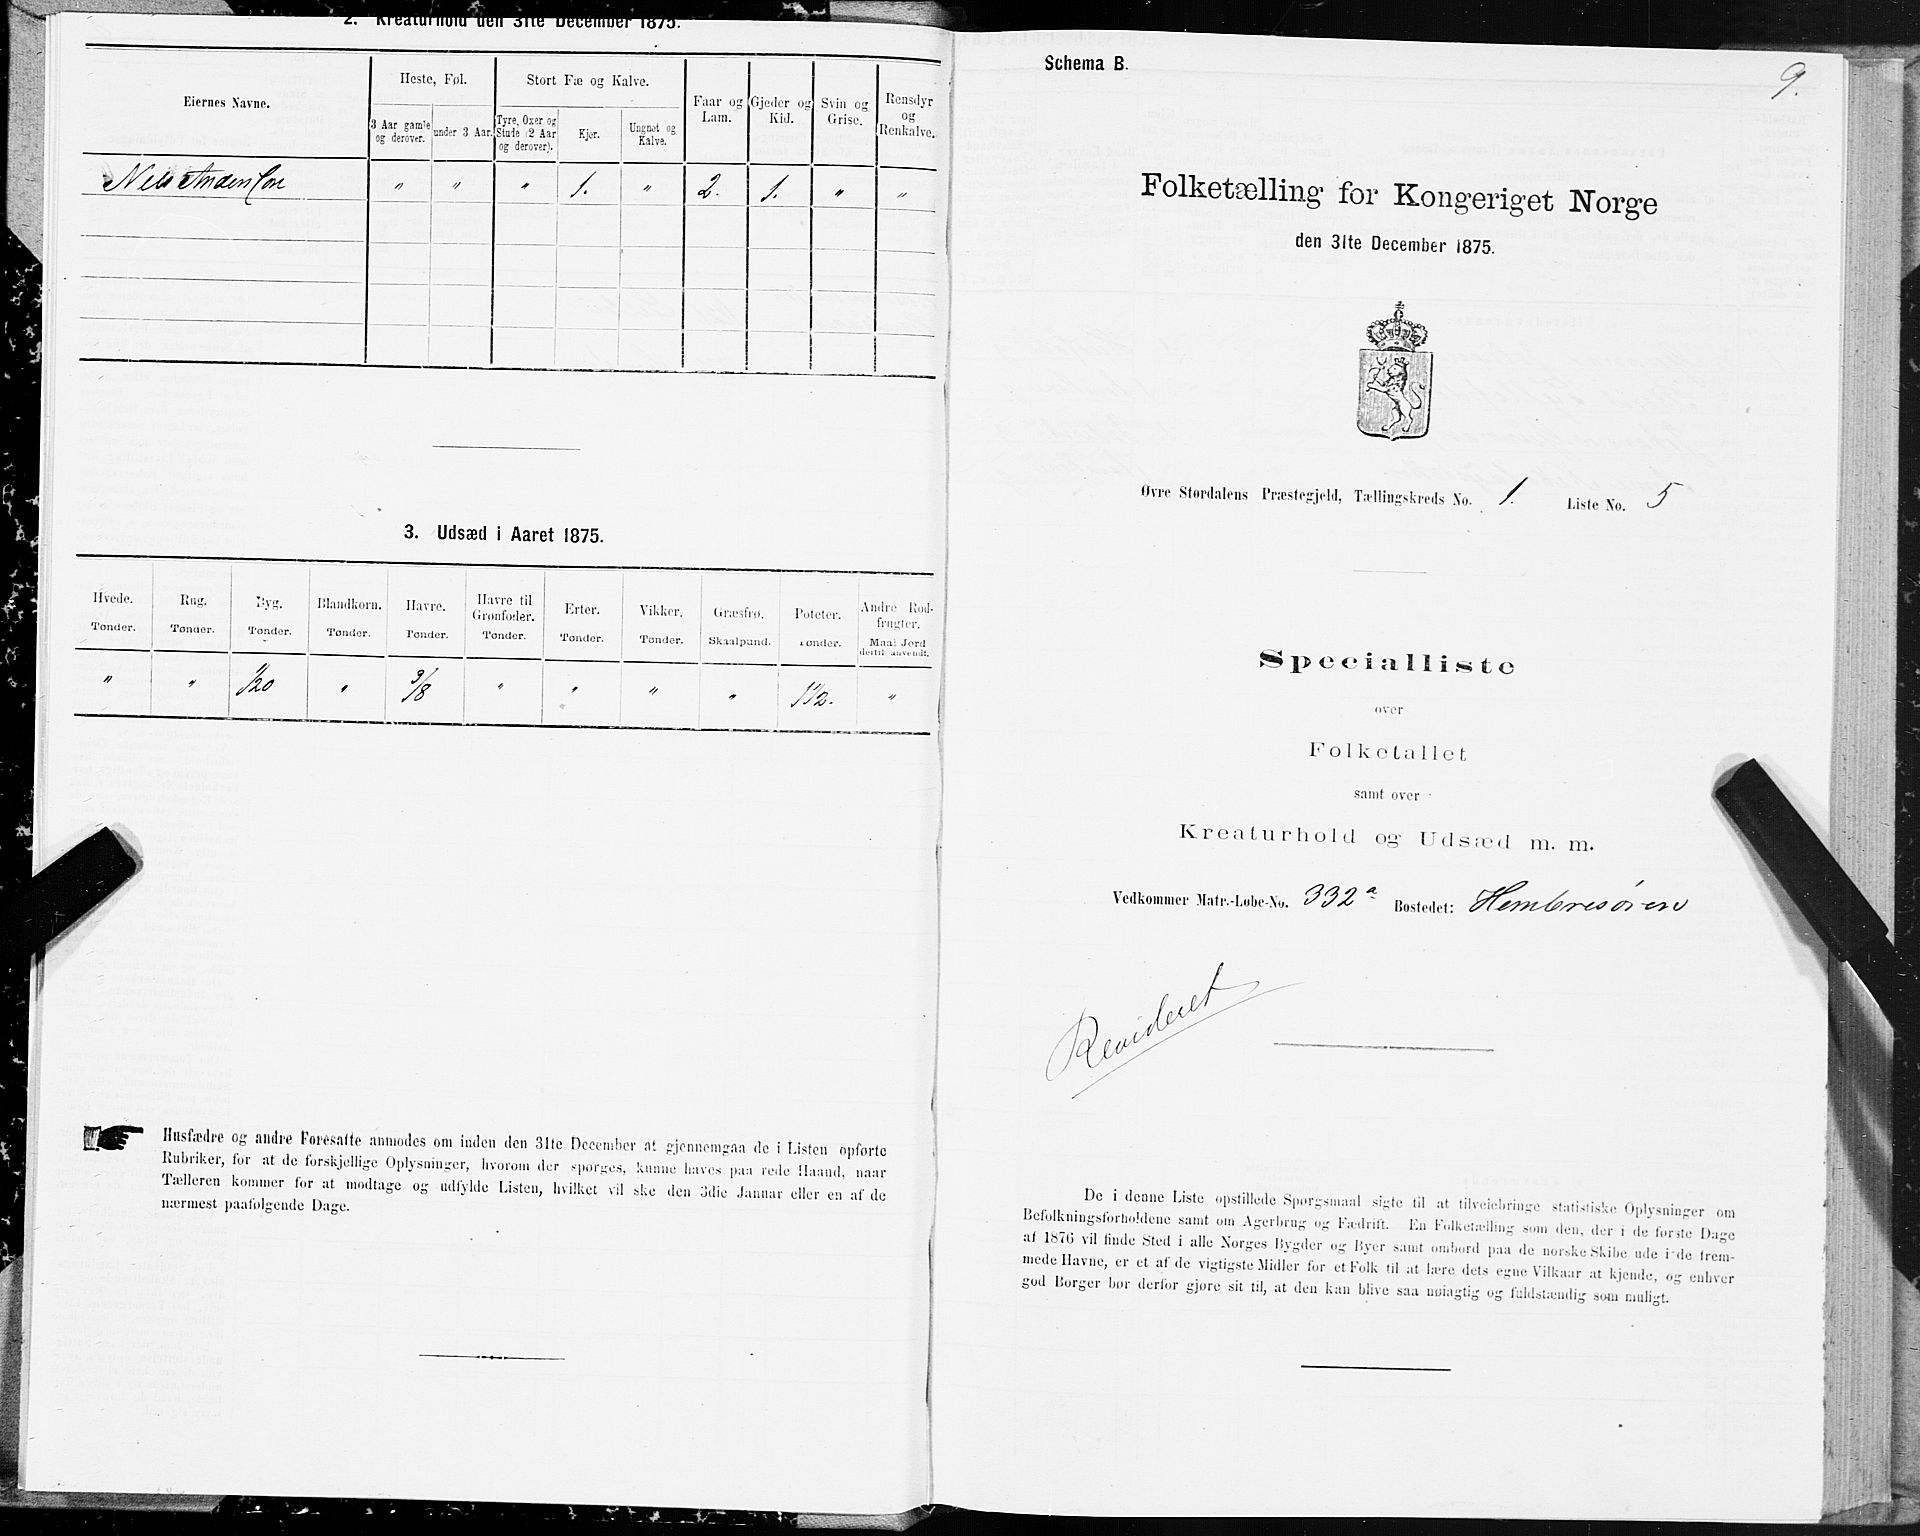 2. Kreaturhold den 31te December 1875.
Eiernes Navne.
Heste, Føl.
3 Aar gamle og derover.
under 3 Aar.
Stort Fæ og Kalve.
Tyre, Oxer og Stude (2 Aar og derover).
Kjør.
Ungnøt og Kalve.
Faar og Lam.
Gjeder og Kid.
Svin og Grise.
Rensdyr og Renkalve.
Nels Andersen " " " 1. " 2. 1. " "
3. Udsæd i Aaret 1875.
Hvede. Rug. Byg. Blandkorn. Havre. Havre til Grønfoder. Erter. Vikker. Græsfrø. Poteter. Andre Rodfrugter.
Tønder. Tønder. Tønder. Tønder. Tønder. Tønder. Tønder. Tønder. Skaalpund. Tønder. Maal Jord dertil anvendt.
" " 1/20 " 3/8 " " " " 1 1/2. "
Husfædre og andre Foresatte anmodes om inden den 31te December at gjennemgaa de i Listen opførte
Rubriker, for at de forskjellige Oplysninger, hvorom der spørges, kunne haves paa rede Haand, naar
Tælleren kommer for at modtage og udfylde Listen, hvilket vil ske den 3die Januar eller en af de
nærmest paafølgende Dage.
Schema B.
9.
Folketælling for Kongeriget Norge
den 31te December 1875.
Øvre Størdalens Præstegjeld, Tællingskreds No. 1. Liste No. 5
Specialliste
over
Folketallet
samt over
Kreaturhold og Udsæd m. m.
Vedkommer Matr.-Løbe-No. 332a Bostedet: Hembresøien
Revideret
De i denne Liste opstillede Spørgsmaal sigte til at tilveiebringe statistiske Oplysninger om
Befolkningsforholdene samt om Agerbrug og Fædrift. En Folketælling som den, der i de første Dage
af 1876 vil finde Sted i alle Norges Bygder og Byer samt ombord paa de norske Skibe ude i de frem-
mede Havne, er et af de vigtigste Midler for et Folk til at lære dets egne Vilkaar at kjende, og enhver
god Borger bør derfor gjøre sit til, at den kan blive saa nøiagtig og fuldstændig som muligt.